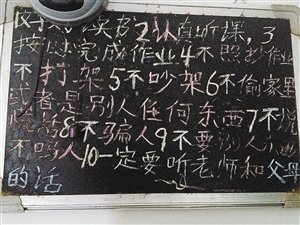 好 2认真听课，3
按 完成作业4不照抄作业
不打架5不吵架6不偷家里
或者是别人任何东西7不说
话8不骗人9不要别人小
不吗人10一定要听老师和父母
的话